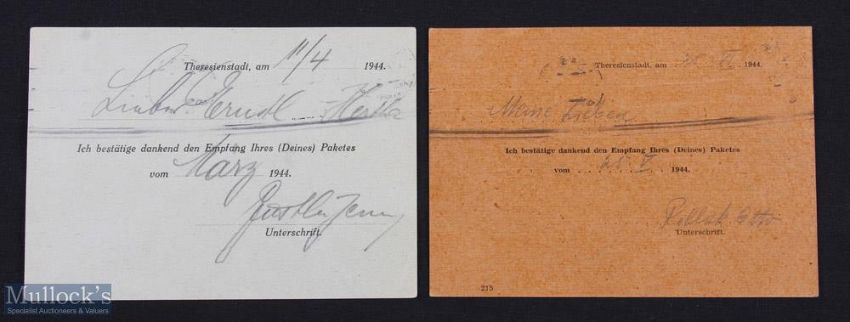 Theresienstadt, am 11/4 1944.
Lieber Ernstl
Ich bestätige dankend den Empfang Ihres (Deines) Paketes
vom März 1944.
Unterschrift.
Theresienstadt, am 1944.
Meine Lieben
Ich bestätige dankend den Empfang Ihres (Deines) Paketes
vom V 1944.
Pollak Otto
Unterschrift.
215
Mullock's
Specialist Auctioneers & Valuers